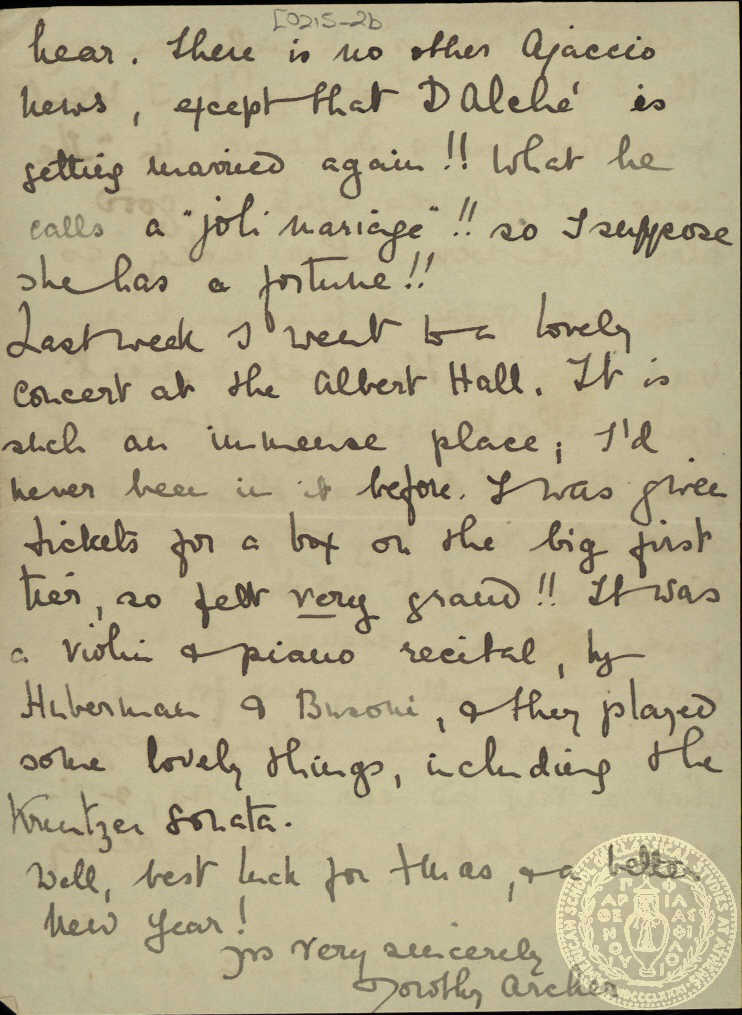 [0215-2b
hear. There is no other Ajaccio
news, except that D'Alché is
getting married again!! What he
calls a "joli mariage"!! so I suppose
she has a fortune!!
Last week I went to a lovely
concert at the Albert Hall. It is
such an immense place; I'd
never been in it before. I was given
tickets for a box on the big first
tier, so felt very grand!! It was
a violin & piano recital, by
Huberman & Busoni, & they played
some lovely things, including the
Kreutzer Sonata.
Well, best luck for Xmas, & a better
New Year!
Yrs very sincerely
Dorothy Archer
AMERICAN SCHOOL OF CLASSICAL STUDIES AT ATHENS
ΠΑΡΘΕΝΟΥ ΦΙΛΑΣ ΦΙΛΟΙ